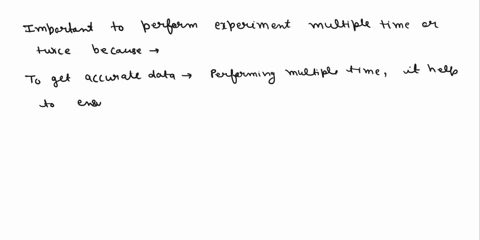 Important to perform experiment multiple time or
twice because →
To get accurate data → Performing multiple time, it help
to ens